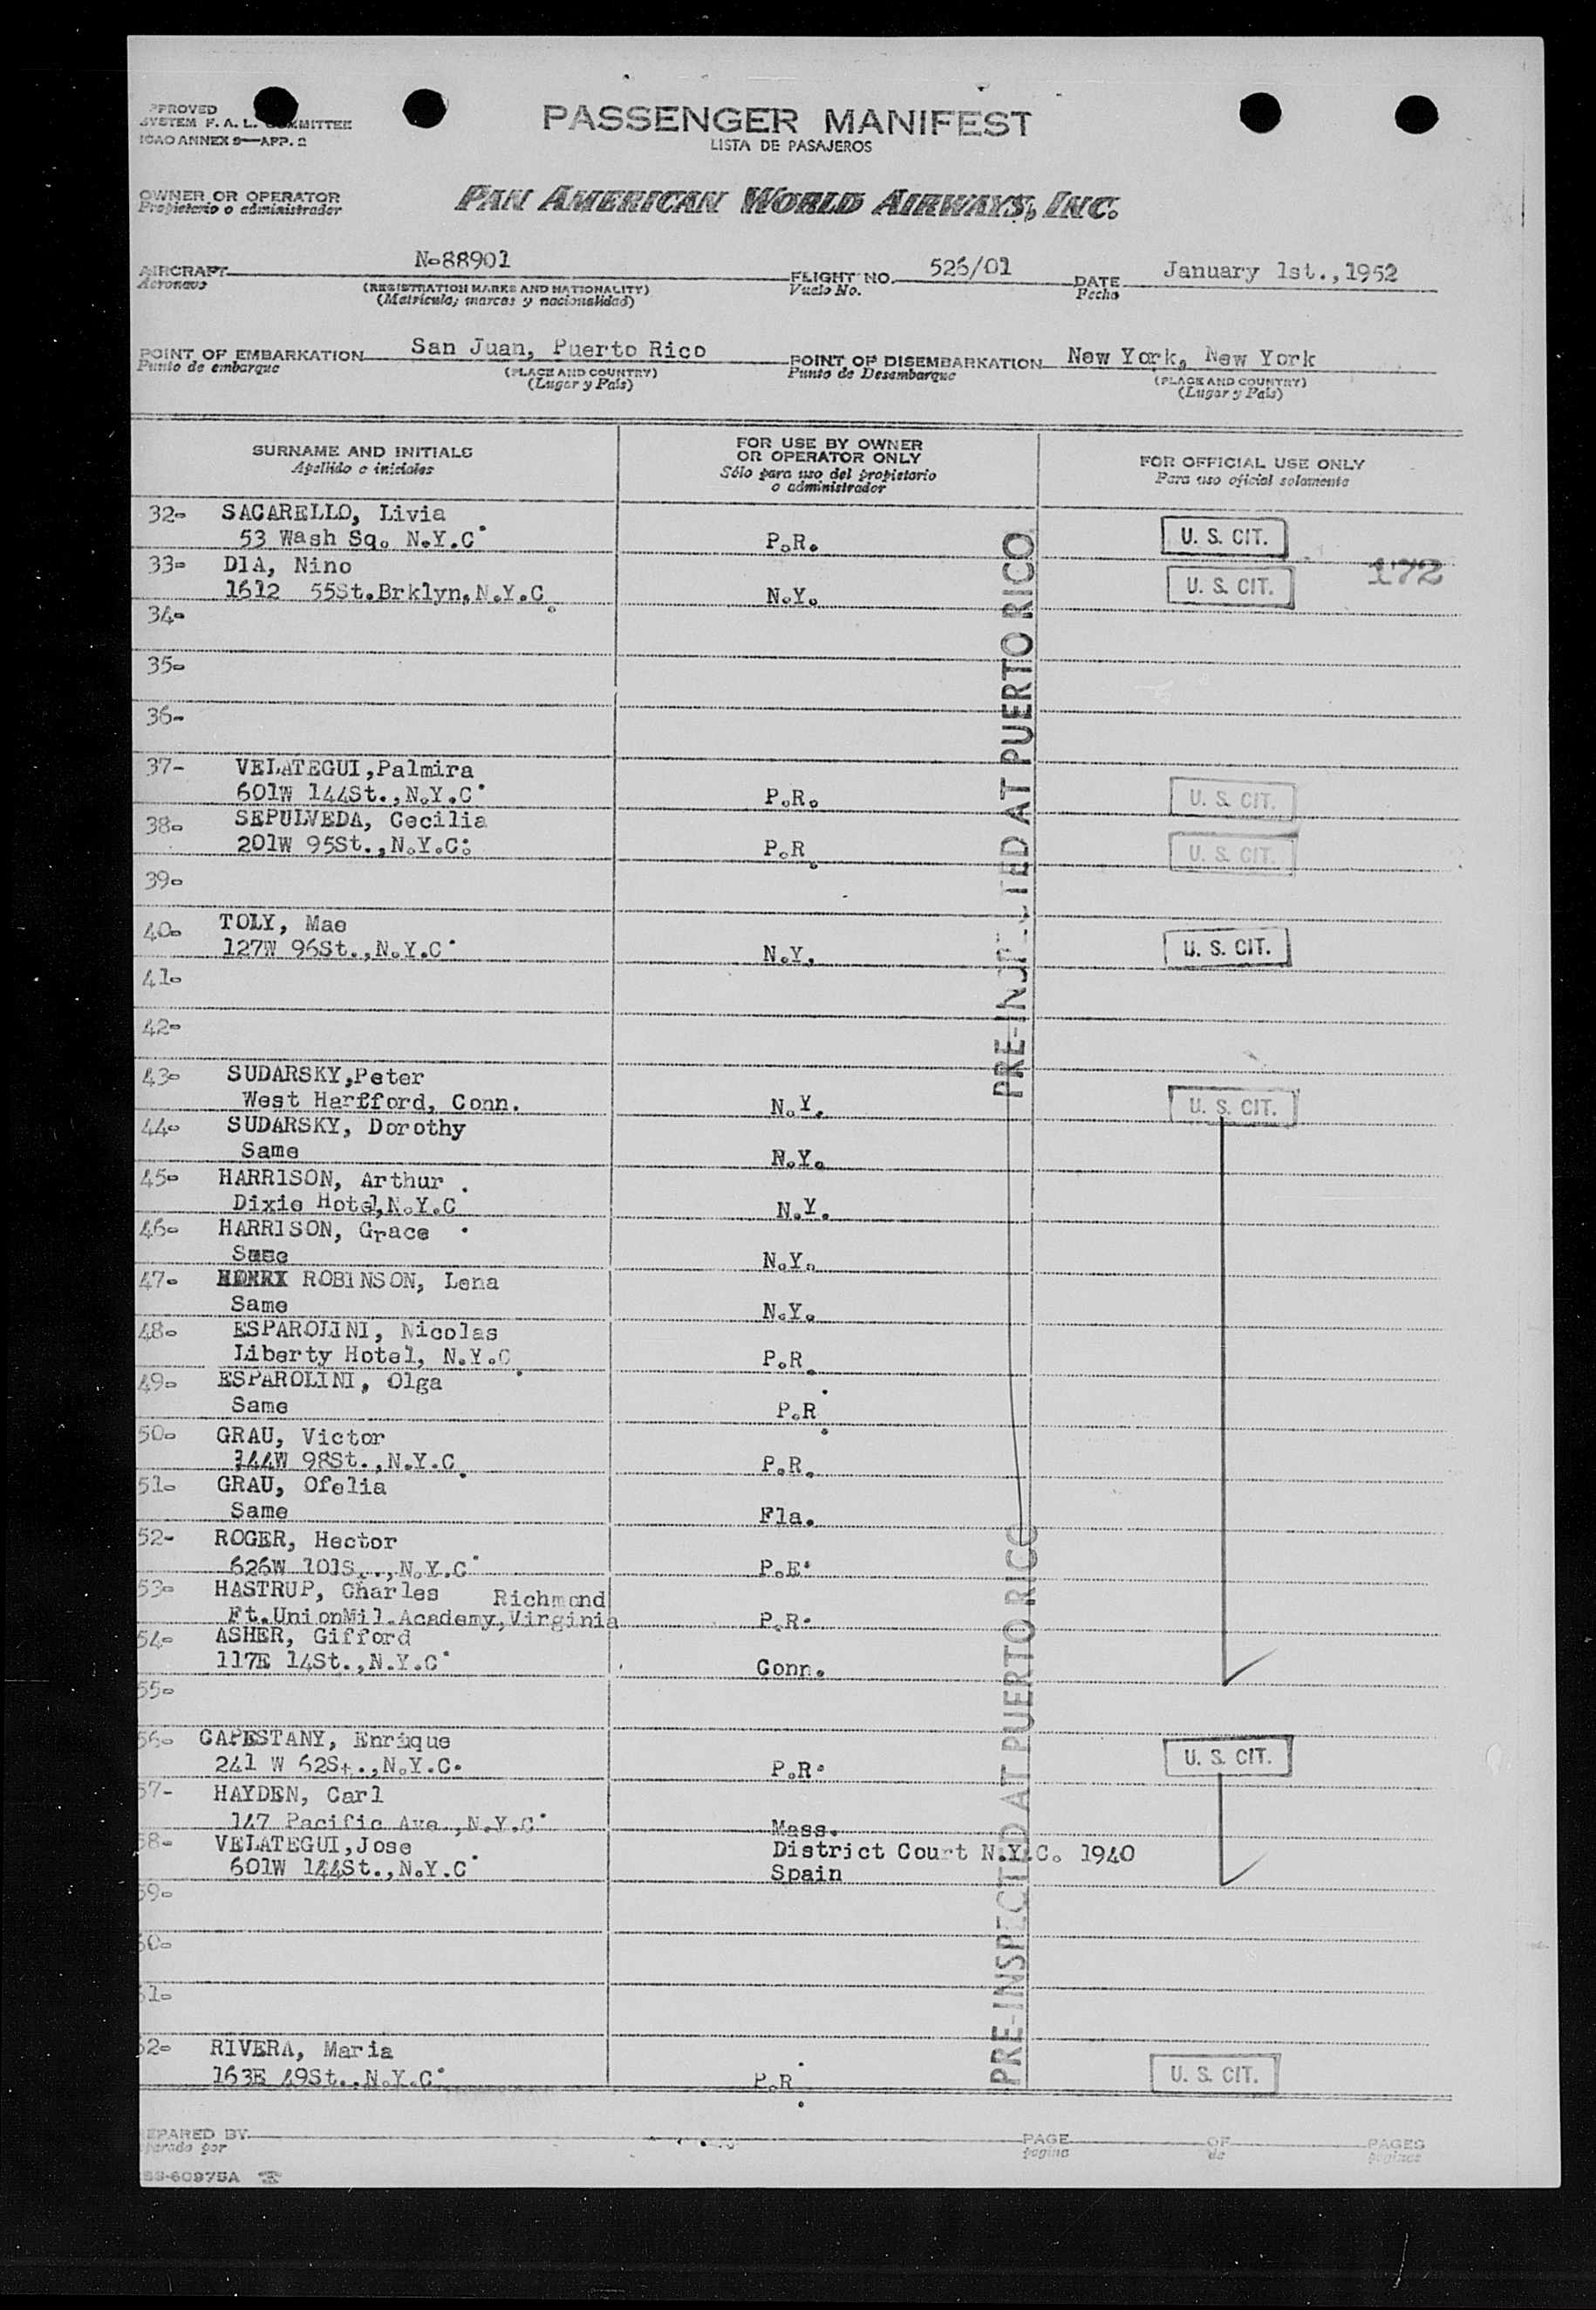 PPROVED
SYSTEM F. A. L. COMMITTEE
ICAO ANNEX 9—APP. 2
PASSENGER MANIFEST
LISTA DE PASAJEROS
OWNER OR OPERATOR
Propietario o administrador
PAN AMERICAN WORLD AIRWAYS, INC.
AIRCRAFT N-88901
Aeronave
(REGISTRATION MARKS AND NATIONALITY)
(Matrícula, marcas y nacionalidad)
FLIGHT NO. 526/01
Vuelo No.
DATE January 1st.,1952
Fecha
POINT OF EMBARKATION San Juan, Puerto Rico
Punto de embarque
(PLACE AND COUNTRY)
(Lugar y País)
POINT OF DISEMBARKATION New York, New York
Punto de Desembarque
(PLACE AND COUNTRY)
(Lugar y País)
SURNAME AND INITIALS
Apellido e iniciales
FOR USE BY OWNER
OR OPERATOR ONLY
Sólo para uso del propietario
o administrador
FOR OFFICIAL USE ONLY
Para uso oficial solamente
32- SACARELLO, Livia
53 Wash Sq. N.Y.C. P.R. U. S. CIT.
172
33- DIA, Nino
1612 55St.Brklyn,N.Y.C. N.Y. U. S. CIT.
34-
35-
36-
37- VELATEGUI,Palmira
601W 144St.,N.Y.C. P.R. U. S. CIT.
38- SEPULVEDA, Cecilia
201W 95St.,N.Y.C. P.R. U. S. CIT.
39-
40- TOLY, Mae
127W 96St.,N.Y.C. N.Y. U. S. CIT.
41-
42-
43- SUDARSKY,Peter
West Harfford, Conn. N.Y. U. S. CIT.
44- SUDARSKY, Dorothy
Same N.Y.
45- HARRISON, Arthur
Dixie Hotel,N.Y.C. N.Y.
46- HARRISON, Grace
Same N.Y.
47- ROBINSON, Lena
Same N.Y.
48- ESPAROLINI, Nicolas
Liberty Hotel, N.Y.C. P.R.
49- ESPAROLINI, Olga
Same P.R.
50- GRAU, Victor
144W 98St.,N.Y.C. P.R.
51- GRAU, Ofelia
Same Fla.
52- ROGER, Hector
626W 101S..,N.Y.C. P.E.
53- HASTRUP, Charles Richmond
Ft.UnionMil.Academy,Virginia P.R.
54- ASHER, Gifford
117E 14St.,N.Y.C. Conn.
55-
56- CAPESTANY, Enrique
241 W 62St.,N.Y.C. P.R. U. S. CIT.
57- HAYDEN, Carl
147 Pacific Ave.,N.Y.C. Mass.
58- VELATEGUI,Jose District Court N.Y.C. 1940
601W 144St.,N.Y.C. Spain
59-
60-
61-
62- RIVERA, Maria
163E 49St.,N.Y.C. P.R. U. S. CIT.
PRE-INSPECTED AT PUERTO RICO
PRE-INSPECTED AT PUERTO RICO
EPARED BY
parado por
PAGE OF PAGES
página de páginas
SS-60975A